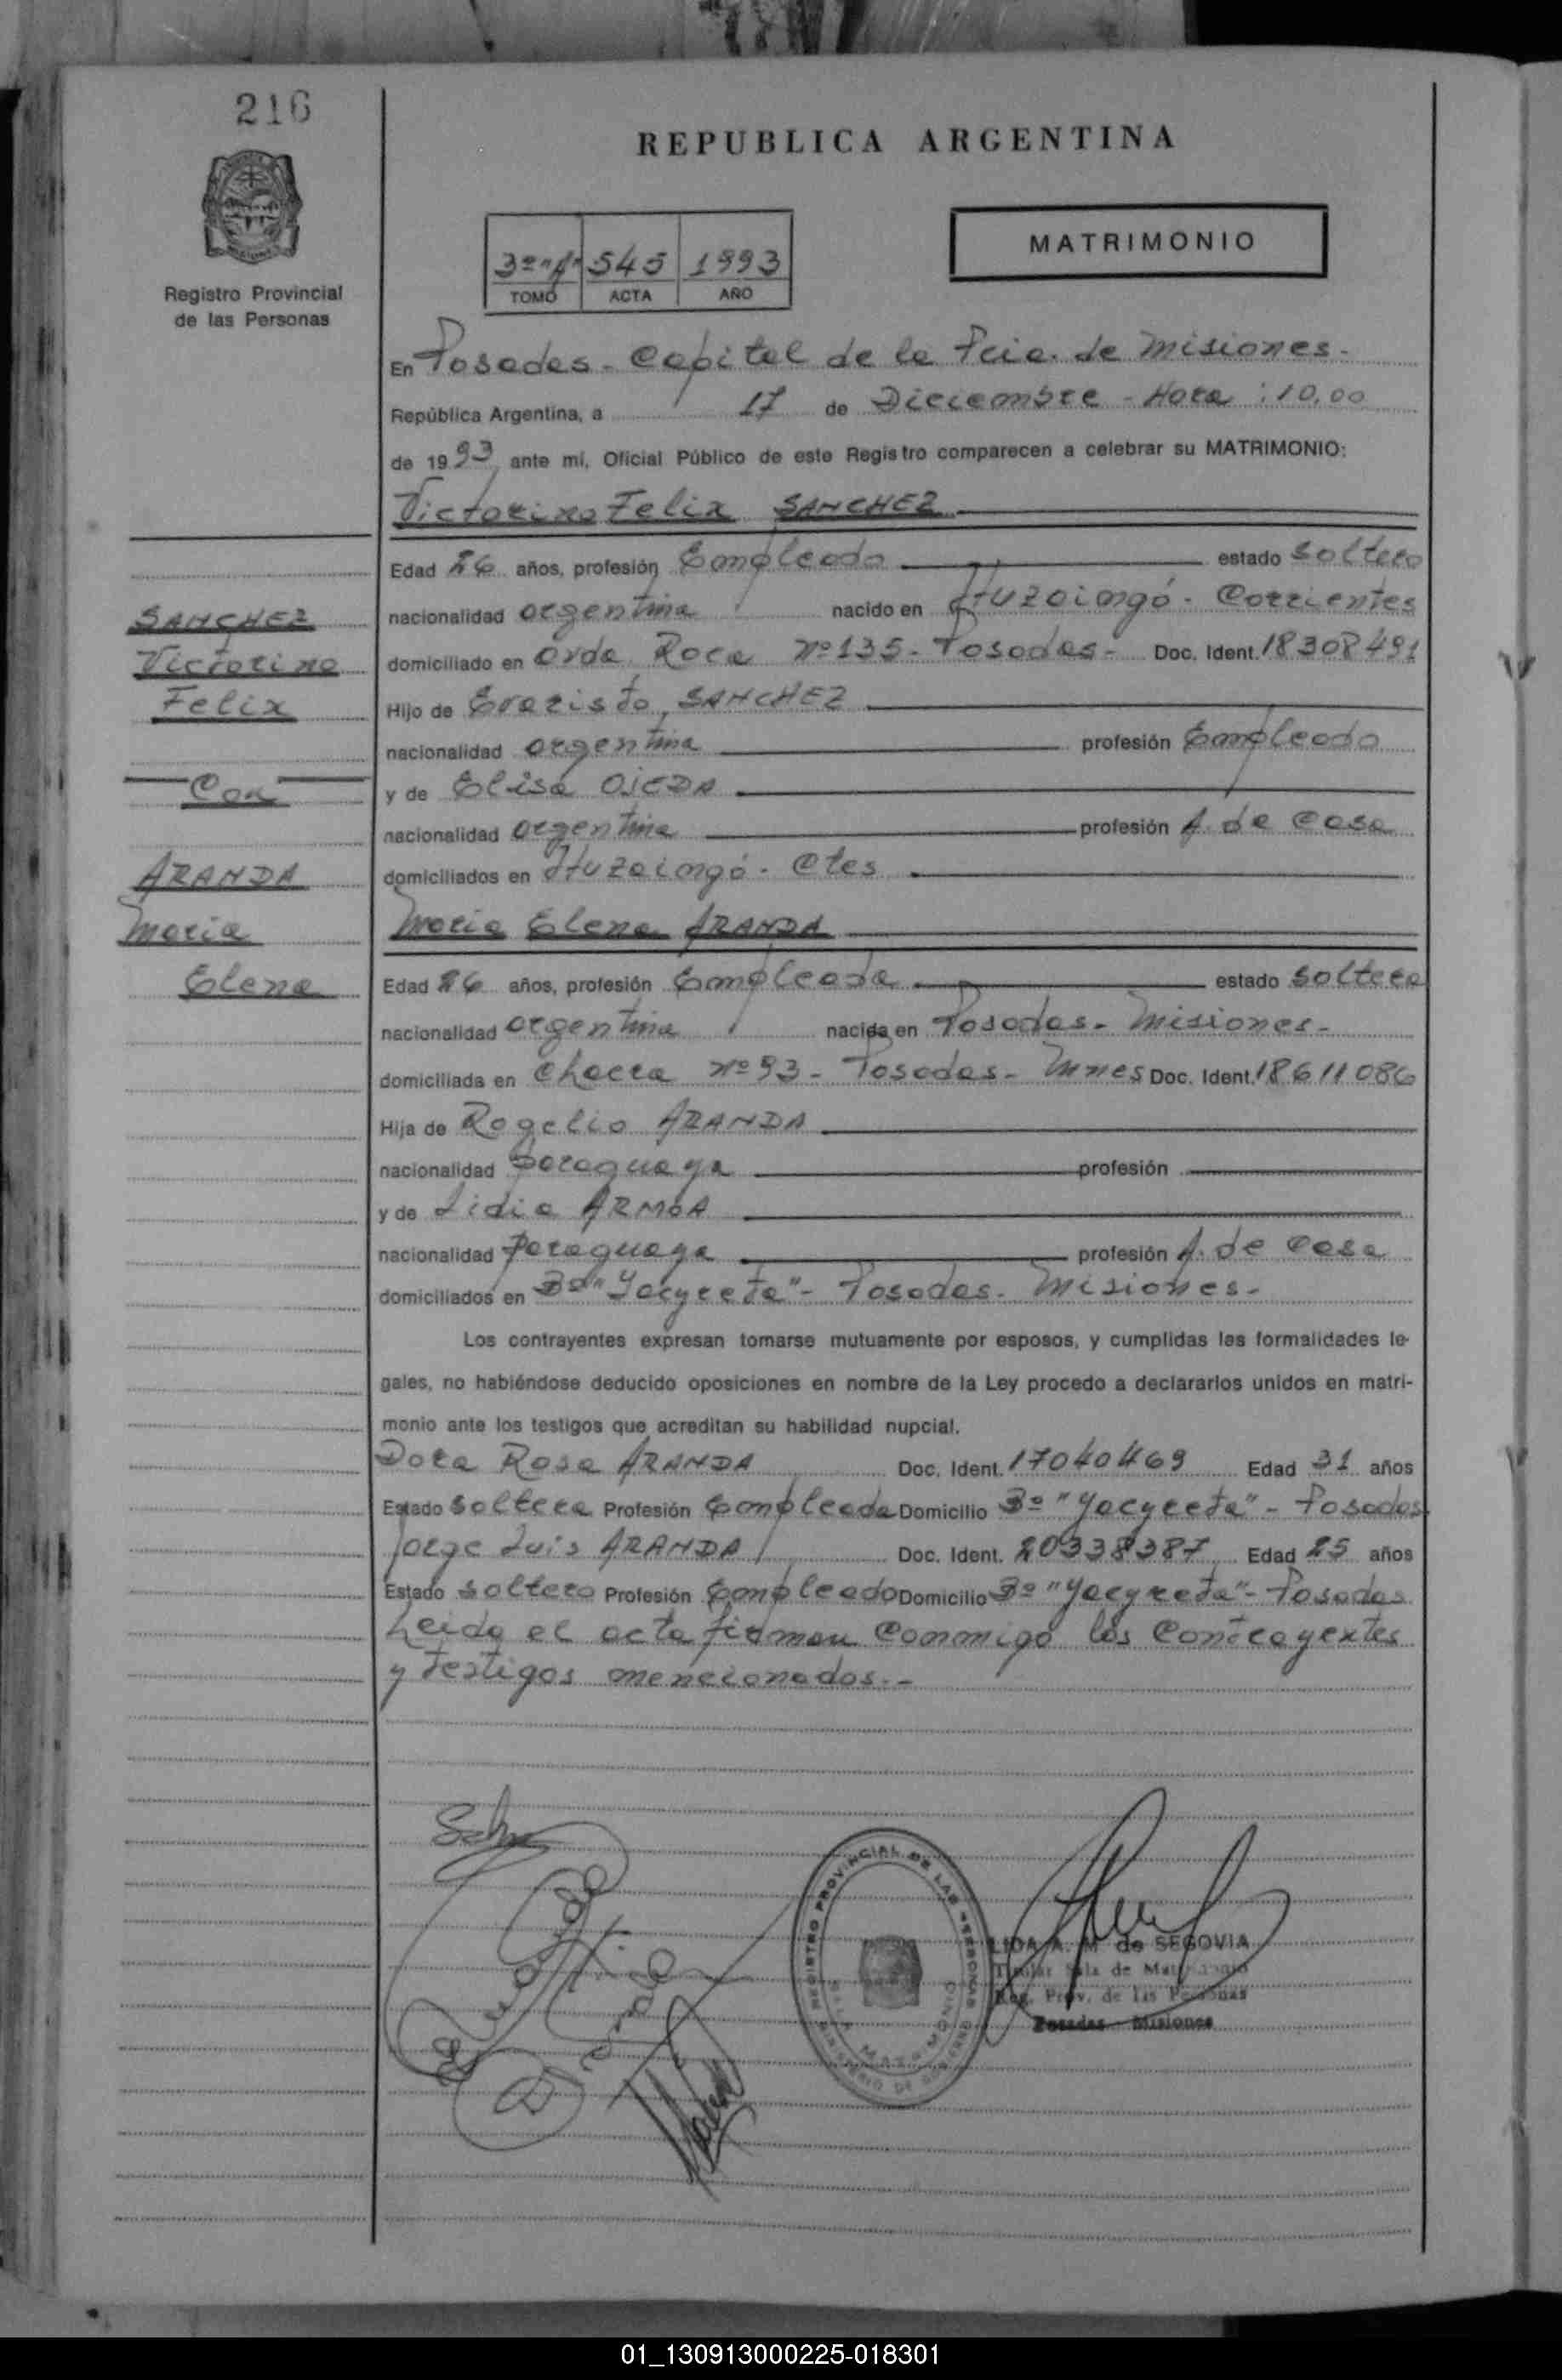 216
REPUBLICA ARGENTINA
MATRIMONIO
3º "A" 545 1993
TOMO ACTA AÑO
Registro Provincial
de las Personas
En Posadas - Capital de la Pcia. de Misiones.-
República Argentina, a 17 de Diciembre - Hora : 10,00
de 1993 ante mí, Oficial Público de este Registro comparecen a celebrar su MATRIMONIO:
Victorino Felix SANCHEZ
Edad 26 años, profesión Empleado estado soltero
nacionalidad argentina nacido en Ituzaingó - Corrientes
domiciliado en Avda Roca Nº 135 - Posadas - Doc. Ident. 18308491
Hijo de Evaristo SANCHEZ
nacionalidad argentina profesión Empleado
y de Elisa OJEDA
nacionalidad argentina profesión A. de Casa
domiciliados en Ituzaingó - Ctes
SANCHEZ
Victorino
Felix
Con
ARANDA
Maria
Elena
Maria Elena ARANDA
Edad 26 años, profesión Empleada estado soltera
nacionalidad argentina nacida en Posadas - Misiones -
domiciliada en Chacra Nº 93 - Posadas - Mnes Doc. Ident. 18611086
Hija de Rogelio ARANDA
nacionalidad paraguaya profesión
y de Lidia ARMOA
nacionalidad paraguaya profesión A. de Casa
domiciliados en Bº "Yacyreta" - Posadas - Misiones -
Los contrayentes expresan tomarse mutuamente por esposos, y cumplidas las formalidades le-
gales, no habiéndose deducido oposiciones en nombre de la Ley procedo a declararlos unidos en matri-
monio ante los testigos que acreditan su habilidad nupcial.
Dora Rosa ARANDA Doc. Ident. 17040469 Edad 31 años
Estado soltera Profesión Empleada Domicilio Bº "Yacyreta" - Posadas
Jorge Luis ARANDA Doc. Ident. 20338387 Edad 25 años
Estado soltero Profesión Empleado Domicilio Bº "Yacyreta" - Posadas
Leida el acta firman conmigo los Contrayentes
y testigos mencionados.-
REGISTRO PROVINCIAL DE LAS PERSONAS
MINISTERIO DE GOBIERNO
SALA MATRIMONIO
LIDA A. M de SEGOVIA
Titular Sala de Matrimonio
Reg. Prov. de las Personas
Posadas - Misiones
01_130913000225-018301